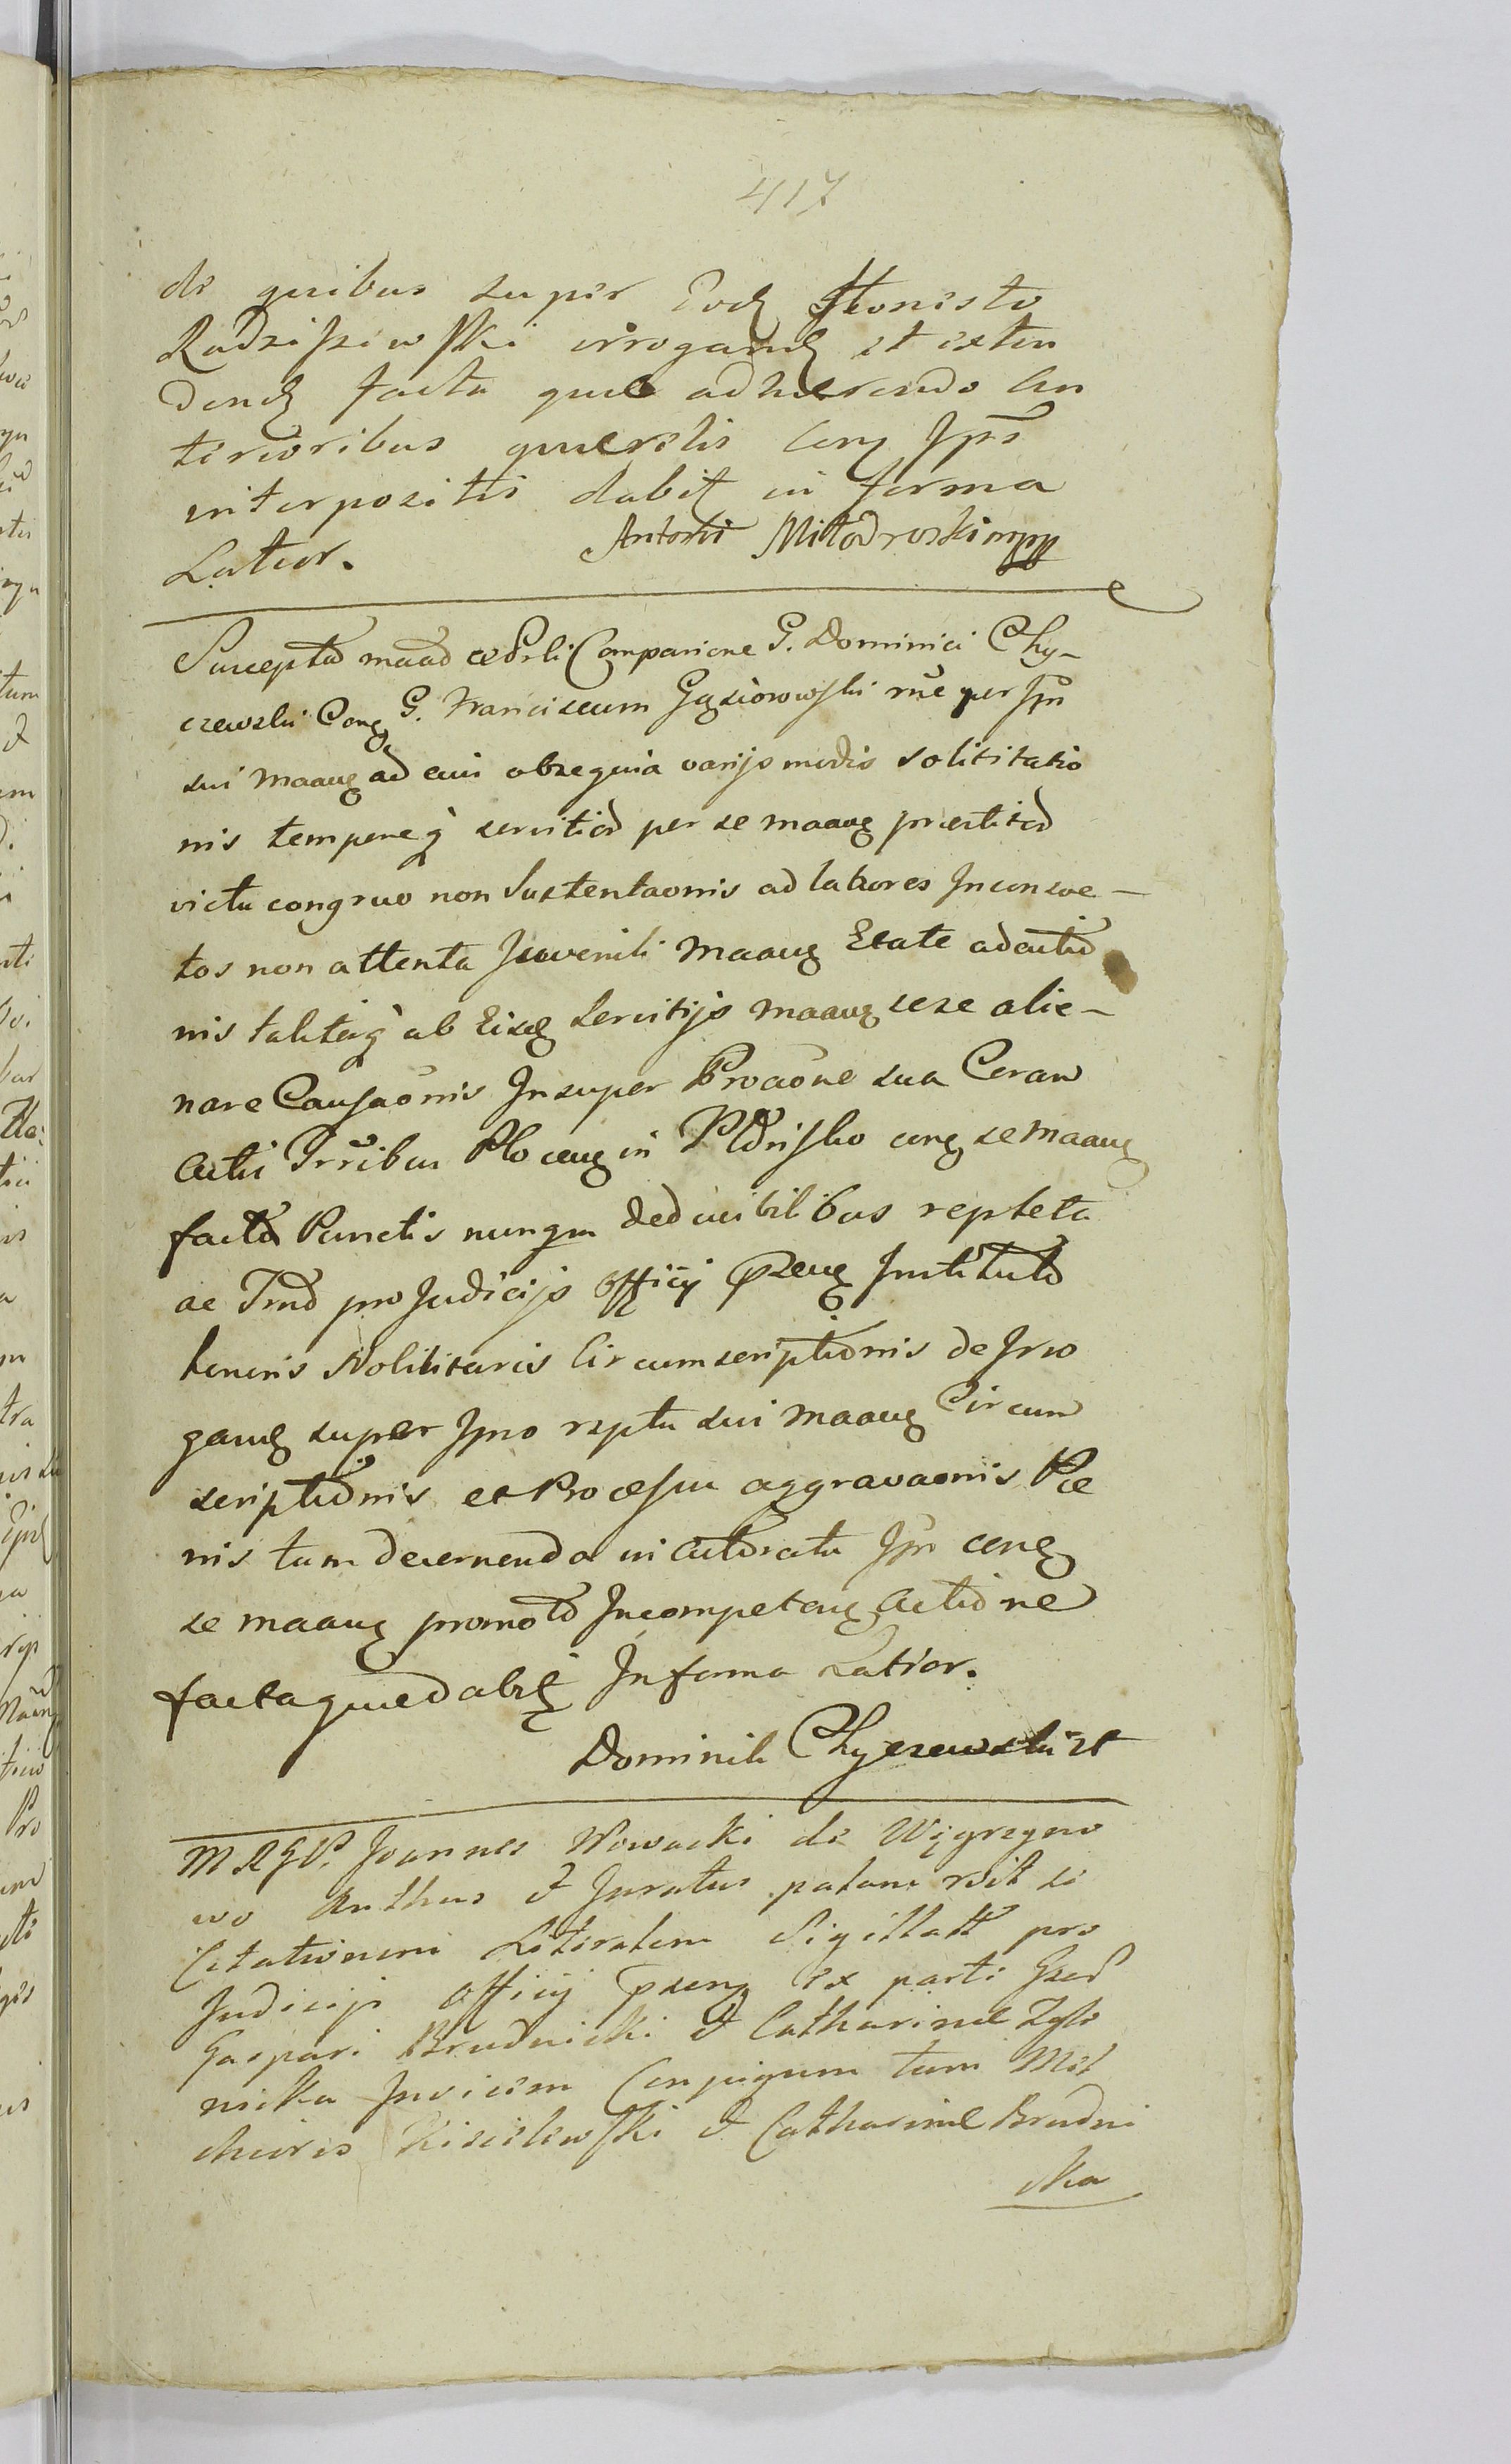 417
de quibus super Eod Honesto
Radziszewski irrogand et exten
dend facta quae adhaerendo an
terioribus querelis cong Ipm
interpositis dabit in forma
Latior.
Antoni Miłodroski mpp
Susceptad maad Compariõne G. Dominici Chy-
czewski Cong G. Franciscum Gąsiorowski rne per Ipm
sui maang ad eius obsequia varijs modis solicitatio
nis temporeq servitiod per se maang praestitod
victu congruo non Sustentaonis ad labores Inconsve-
tos non attenta Juvenili maang Etate adactio
nis taliterq ab Eisd Servitijs maang sese alie-
nare Causaõnis Insuper Procaõne sua Coram
Actis Trribus Plocen in Płońsko cong se maang
factd Punctis nunqm deducibilibus repleta
ac Tmd pro Judicijs Officij pzeng Institutd
honoris Nobilitaris Circumscriptionis de Irro
gang super Ipso rsptu sui maang Circum
scriptionis et Processu aggravaonis Poe
nis tum decernenda in Actoratu Ipm cong
se maang promotd Incompeteng Actione
facta quae dabit In forma Latior.
Dominik Chyczewski
M R G P. Joannes Nowacki de Węgrzyno
wo Authus et Juratus palam rsit se
Citationem Literalem Sigillatt pro
Judicijs Officij pzeng ex parte
Gaspari Brudnicki et Catharinae Zglo
nicka Invicem Conjugum tum Mel
chioris Kisielewski et Catharinae Brudni
cka